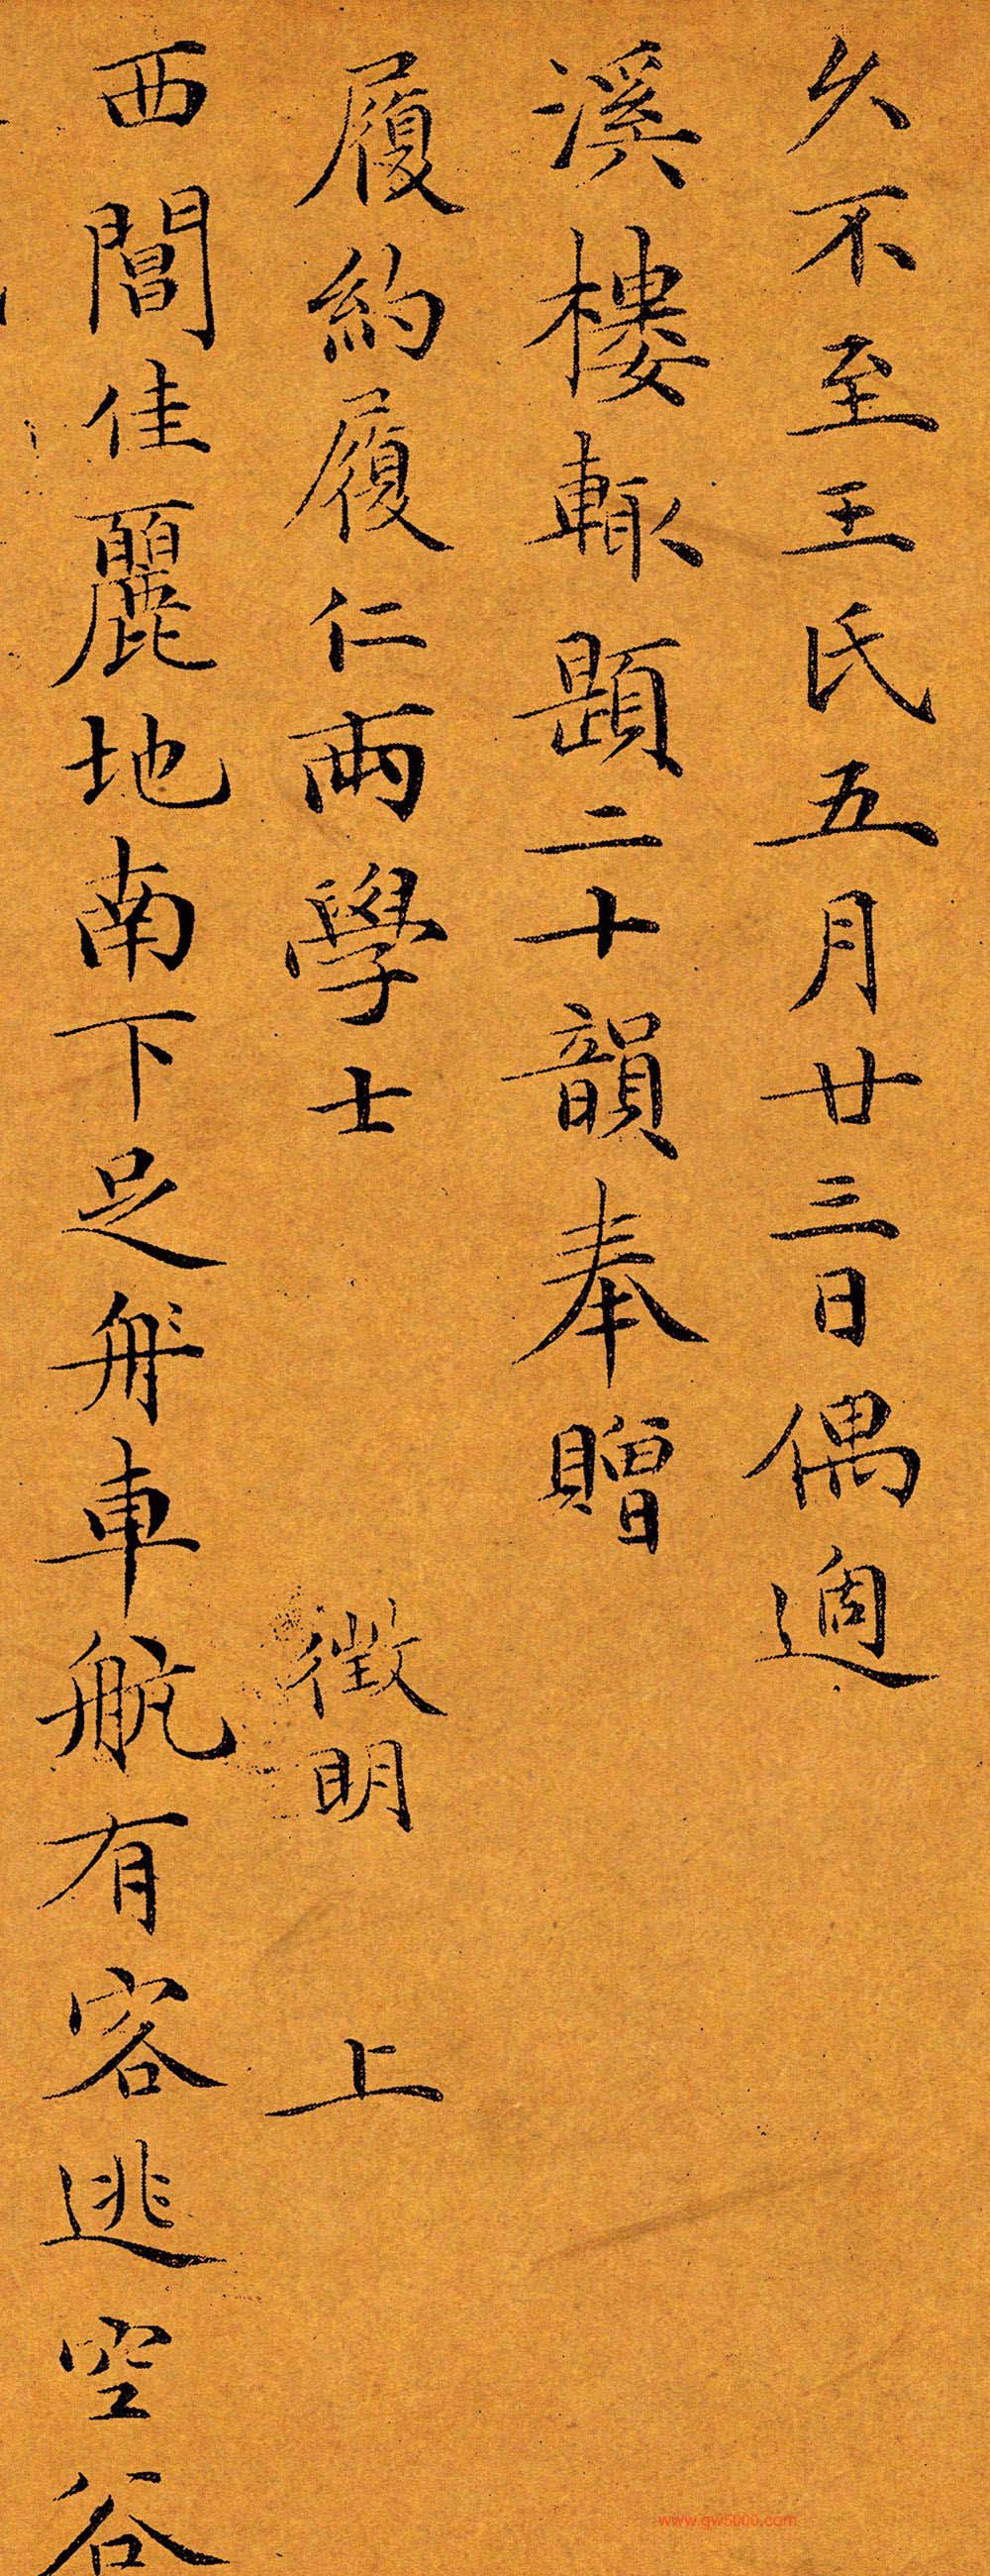 久不至王氏五月廿三日偶過
溪樓輙題二十韻奉贈
履約履仁兩學士
徵明
上
西閶佳麗地南下足舟車航有容逃空谷
www.gw5000.com